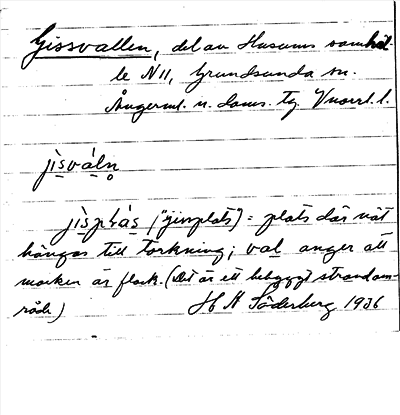 Gissvallen, del av Husums samhäl-
le N11, Grundsunda sn.
Ångerml. n. doms. tg. Vnorrl. l.
jìsváln̥
jìsplás ("gissplats") = plats där nät
hängas till torkning; val anger att
marken är flack. (Det är ett bebyggt strandom-
råde) H H Söderberg 1936